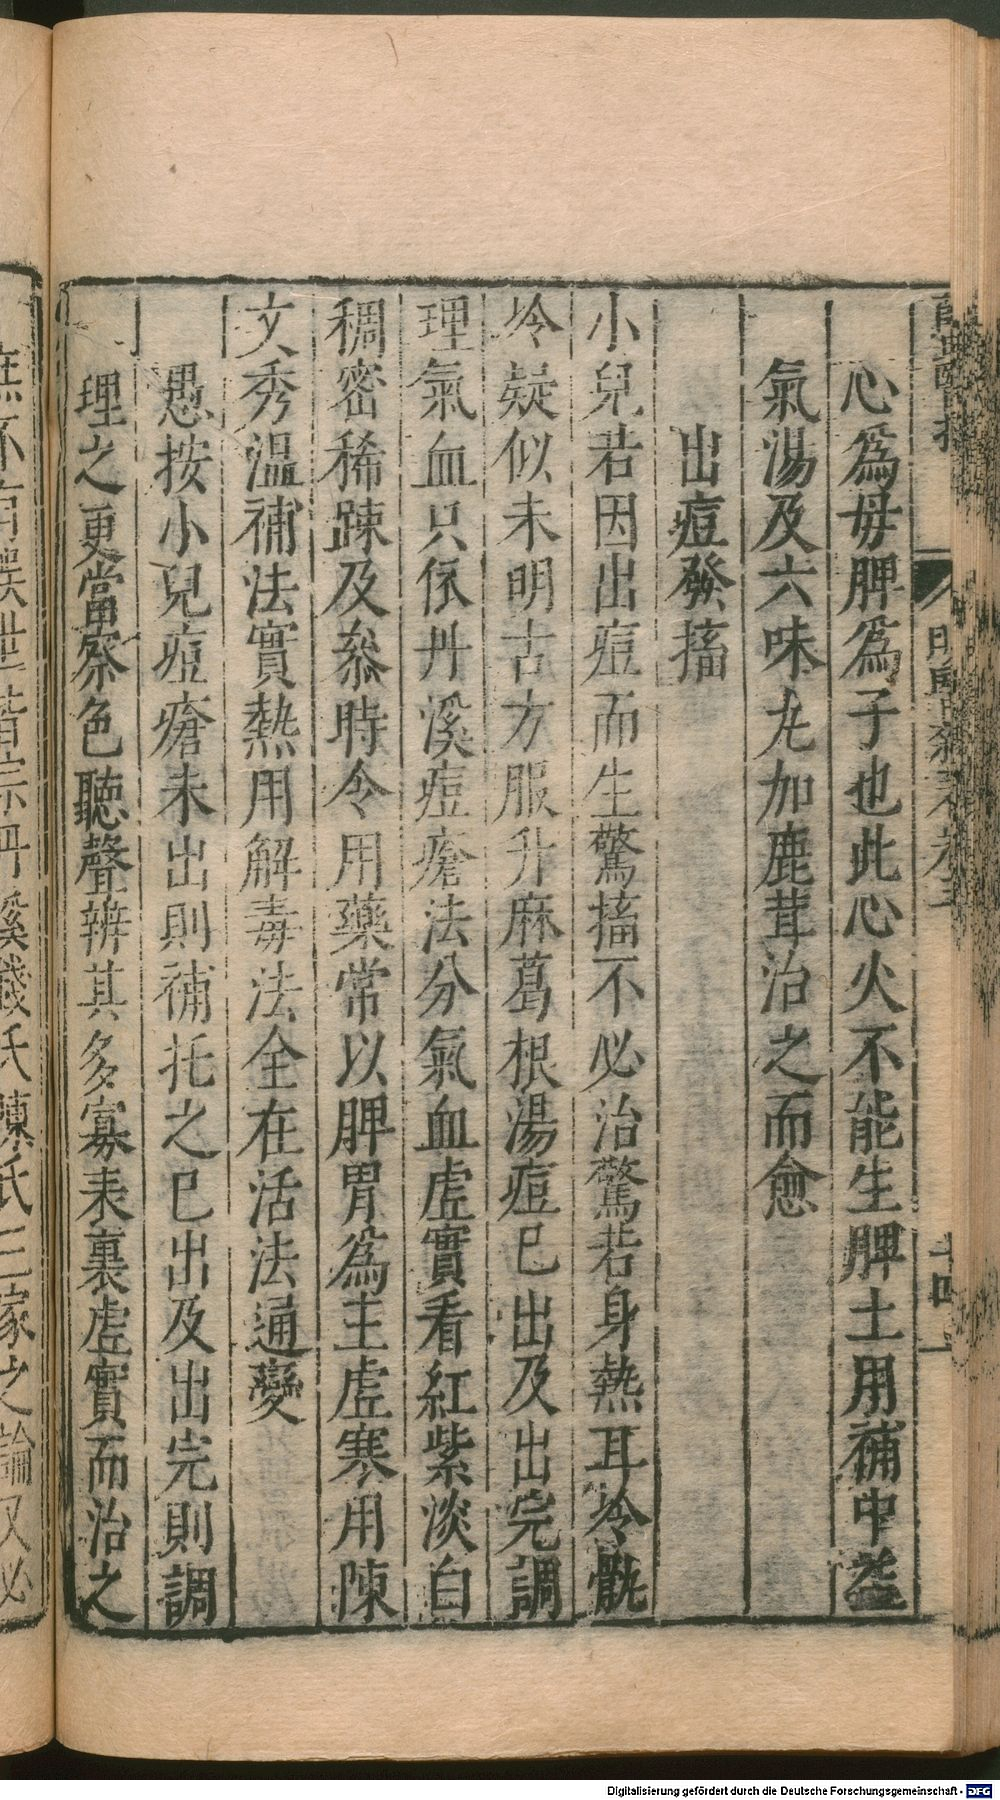 心爲母脾爲子也此心火不能生脾土用補中益
氣湯及六味丸加鹿茸治之而愈
出痘發搐
小兒若因出痘而生驚搐不必治驚若身熱耳冷骩
冷疑似未明古方服升麻葛根湯痘已出及出完調
理氣血只依丹溪痘瘡法分氣血虛實看紅紫淡白
稠密稀踈及叅時令用藥常以脾胃爲主虛寒用陳
文秀溫補法實熱用解毒法全在活法通變
愚按小兒痘瘡未出則補托之已出及出完則調
理之更當察色聽聲辨其多寡表裏虛實而治之
氏陳氏三家之論又必
Digitalisierung gefördert durch die Deutsche Forschungsgemeinschaft - DFG